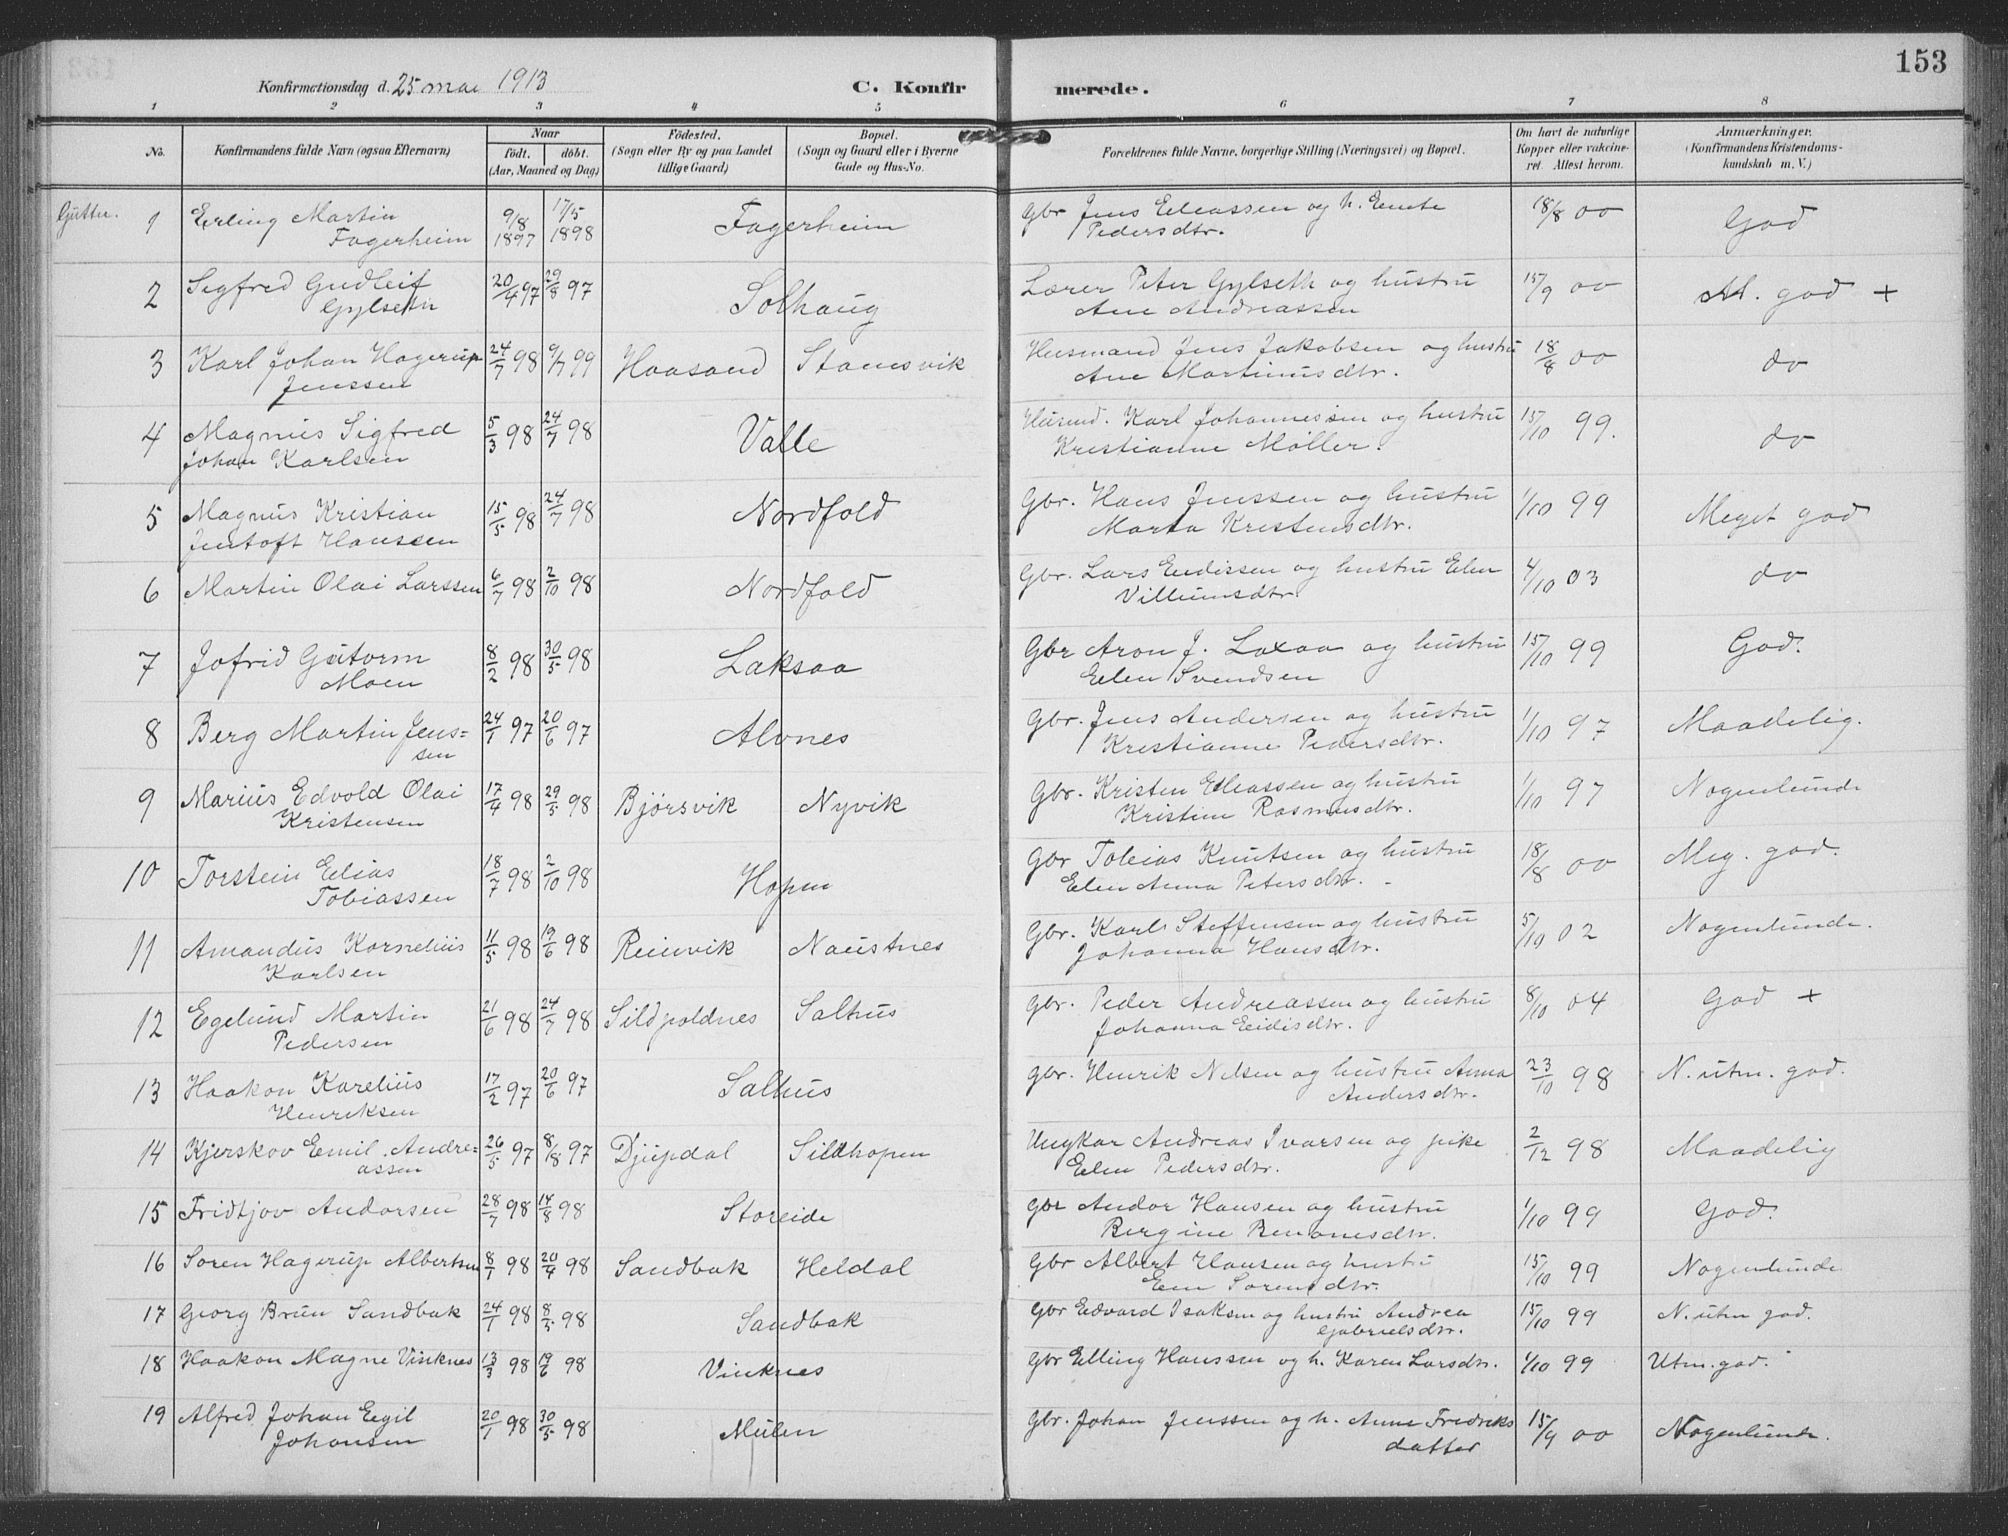 153
Konfirmationsdag d. 25 mai 1913
C. Konfirmerede.
1 2 3 4 5 6 7 8
No.
Konfirmandens fulde Navn (ogsaa Efternavn)
Naar
født. døbt.
(Aar, Maaned og Dag)
Fødested.
(Sogn eller By og paa Landet
tillige Gaard)
Bopæl.
(Sogn og Gaard eller i Byerne
Gade og Hus-No.
Forældrenes fulde Navne, borgerlige Stilling (Næringsvei) og Bopæl.
Om havt de naturlige
Kopper eller vakcine-
ret. Attest herom.
Anmærkninger.
(Konfirmandens Kristendoms-
kundskab m. V.)
Gutter.
1 Erling Martin 9/8 17/5 Fagerheim Gbr Jens Eleassen og h. 18/8 00 God
Fagerheim 1897 1898 Pedersdtr.
2 Sigfred Gudleif 20/4 97 29/8 97 Solhaug Lærer Peter Gylseth og hustru 15/9 00 M. god +
Gylseth Ane Andreassen
3 Karl Johan Hagerup 24/7 98 9/7 99 Haasand Stamsvik Husmand Jens Jakobsen og hustru 18/8 00 do
Jenssen Ane Martinusdtr.
4 Magnus Sigfred 5/3 98 24/7 98 Valle Husmd. Karl Johannessen og hustru 15/10 99. do
Johan Karlsen Kristianne Møller.
5 Magnus Kristian 15/5 98 24/7 98 Nordfold Gbr. Hans Jenssen og hustru 1/10 99 Meget god
Jentoft Hanssen Marta Kristensdtr.
6 Martin Olai Larssen 6/7 98 2/10 98 Nordfold Gbr. Lars Endissen og hustru Elen 4/10 03 do
Villumsdtr.
7 Jofrid Gutorm 8/2 98 30/5 98 Laksaa Gbr Aron J. Laxaa og hustru 15/10 99 God.
Moen Elen Svendsen
8 Berg Martin Jens- 24/1 97 20/6 97 Alvnes Gbr. Jens Andersen og hustru 1/10 97 Maadelig.
sen Kristianne Pedersdtr.
9 Marius Edvold Olai 17/4 98 29/5 98 Bjørsvik Nyvik Gbr. Kristen Eleassen og hustru 1/10 97 Nogenlunde
Kristensen Kristine Rasmusdtr.
10 Torstein Elias 18/7 98 2/10 98 Hopen Gbr Tobias Knutsen og hustru 18/8 00 Meg. god.
Tobiassen Elen Anna Petersdtr.
11 Amandus Kornelius 11/5 98 19/6 98 Reinvik Naustnes Gbr. Karl Steffensen og hustru 5/10 02 Nogenlunde.
Karlsen Johanna Hansdtr.
12 Egelund Martin 21/6 98 24/7 98 Sildpoldnes Salhus Gbr. Peder Andreassen og hustru 8/10 04 God +
Pedersen Johanna Eidisdtr.
13 Haakon Karelius 17/2 97 20/6 97 Salhus gbr. Henrik Nilsen og hustru Anna 23/10 98 N. utm. god.
Henriksen Andersdtr.
14 Kjerskov Emil Andre- 26/5 97 8/8 97 Djupdal Sildhopen Ungkar Andreas Ivarsen og pike 2/12 98 Maadelig
assen Elen Pedersdtr.
15 Fridtjov Andorsen 28/7 98 14/8 98 Storeide Gbr Andor Hansen og hustru 1/10 99 God.
Bergine Benonesdtr.
16 Søren Hagerup Albertsen 8/1 98 20/4 98 Sandbak Heldal Gbr Albert Hansen og hustru 15/10 99 Nogenlunde
Sørensdtr.
17 Georg Brun Sandbak 24/1 98 8/5 98 Sandbak Gbr Edvard Isaksen og hustru Andrea 15/10 99 N. utm god.
Gabrielsdtr.
18 Haakon Magne Vinknes 13/3 98 19/6 98 Vinknes Gbr Elling Hanssen og h. Karen Larsdtr. 1/10 99 Utm. god.
19 Alfred Johan Egil 20/1 98 30/5 98 Mulen Gbr. Johan Jenssen og h. Anne Fredriks 15/9 00 Nogenlunde.
Johansen datter